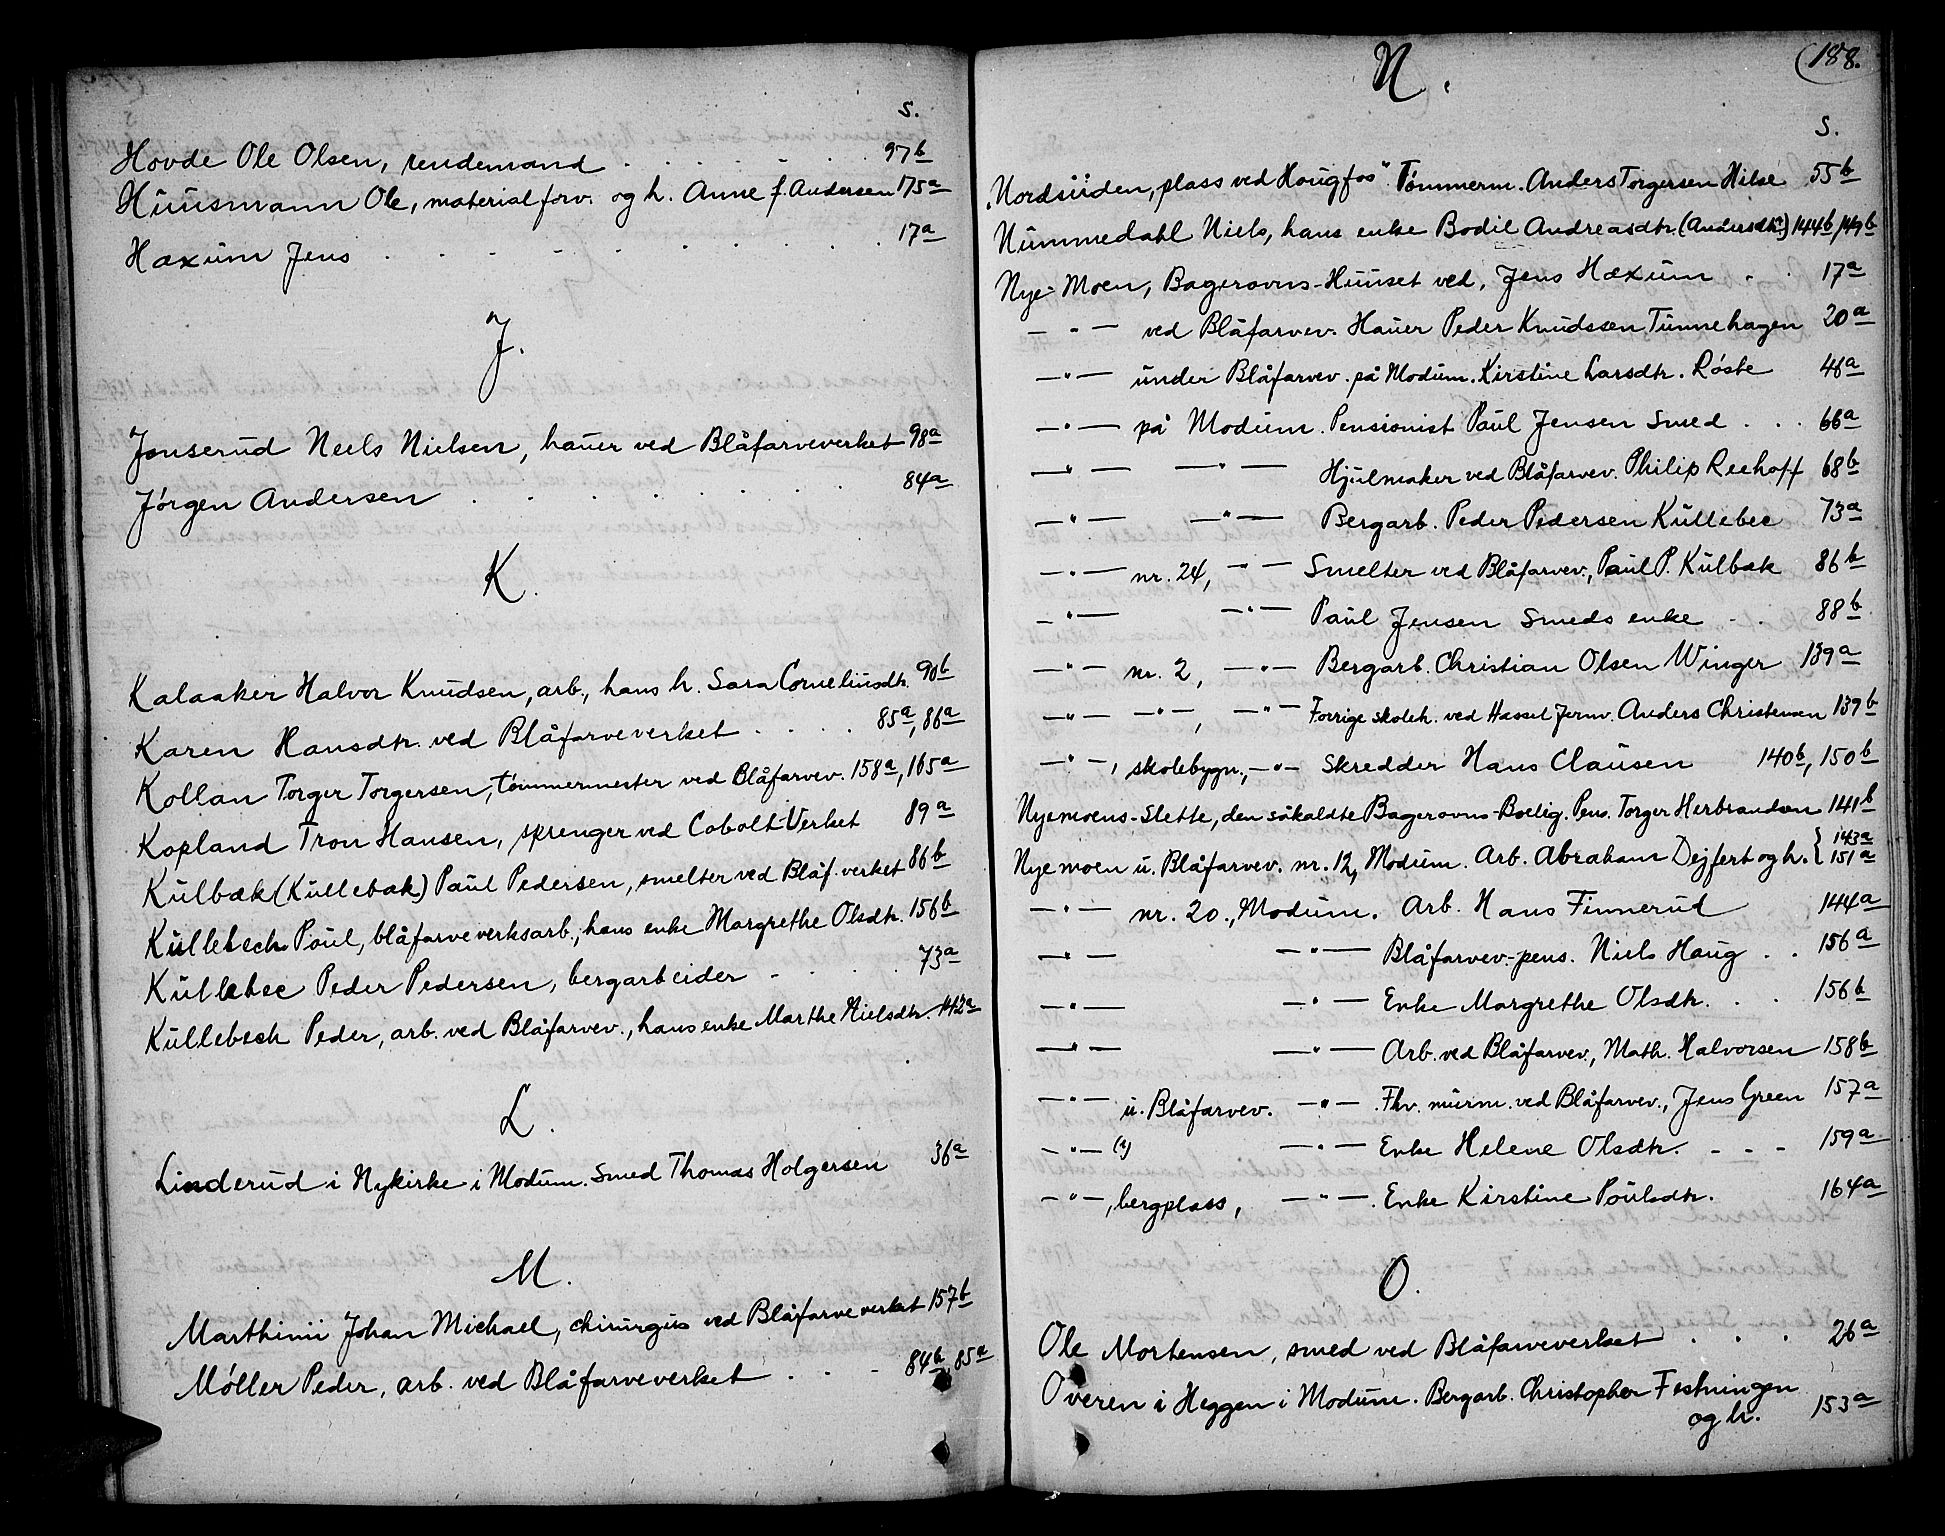 S.
Hovde Ole Olsen, rendemand . . . . . . 97b
Huusmann Ole, materialforv. og h. Anne f. Andersen 175a
Hæxum Jens . . . . . . . . 17a
J.
Jonserud Neels Nielsen, hauer ved Blåfarveverket 98a
Jørgen Andersen . . . . . . . . 84a
K.
Kalaaker Halvor Knudsen, arb., hans h. Sara Corneliusdtr. 90b
Karen Hansdtr. ved Blåfarveverket . . . . 85a, 86a
Kollan Torger Torgersen, tømmermester ved Blåfarvev. 158a, 165a
Kopland Tron Hansen, sprenger ved Cobolt-Verket 89a
Kulbæk (Kullebak) Paul Pedersen, smelter ved Blåf. verket 86b
Kullebech Poul, blåfarveverksarb., hans enke Margrethe Olsdtr. 156b
Kullebec Peder Pedersen, bergarbeider . . . 73a
Kullebech Peder, arb. ved Blåfarvev., hans enke Marthe Nielsdtr. 142a
L.
Linderud i Nykirke i Modum. Smed Thomas Holgersen 36a
M.
Marthinii Johan Michael, chirurgus ved Blåfarveverket 157b
Møller Peder, arb. ved Blåfarveverket . . . 84b, 85a
(188.
N.
S.
"Nordsiiden, plass ved Hougfos" Tømmerm. Anders Torgersen Hilse 55b
Nummedahl Niels, hans enke Bodil Andreasdtr. (Andersdtr.) 144b, 149b
Nye-Moen, Bagerovns-Huuset ved, Jens Hæxum . . 17a
— " — ved Blåfarvev. Hauer Peder Knudssen Tunnehagen 20a
— " — under Blåfarvev. på Modum. Kirstine Larsdtr. Røste 46a
— " — på Modum. Pensionist Paul Jensen Smed . . . 66a
— " — — " — Hjulmaker ved Blåfarvev. Philip Reehoff 68b
— " — — " — Bergarb. Peder Pedersen Kullebec 73a
— " — nr. 24, — " — Smelter ved Blåfarvev., Paul P. Kulbæk 86b
— " — — " — Paul Jensen Smeds enke . . 88b
— " — nr. 2, — " — Bergarb. Christian Olsen Winger 139a
— " — — " —, — " — Forrige skoleh. ved Hassel Jernv. Anders Christensen 139b
— " —, skolebygn., — " — Skredder Hans Clausen 140b, 150b
Nyemoens-Slette, den såkaldte Bagerovns-Boelig. Pens. Torger Herbrandsen 141b
Nyemoen u. Blåfarvev. nr. 12, Modum. Arb. Abraham Dejfert og h. { 143a 151a
— " — nr. 20., Modum. Arb. Hans Finnerud 144a
— " — — " — Blåfarvev.-pens. Niels Haug . . 156a
— " — — " — Enke Margrethe Olsdtr. . . 156b
— " — — " — Arb. ved Blåfarvev., Math. Halvorsen 158b
— " — u. Blåfarvev. — " — Fhv. murm. ved Blåfarvev., Jens Green 157a
— " — (?) — " — Enke Helene Olsdtr. . . . 159a
— " —, bergplass, — " — Enke Kirstine Poulsdtr. 164a
O.
Ole Mortensen, smed ved Blåfarveverket . . . 26a
Overen i Heggen i Modum. Bergarb. Christopher Festningen
og h. 153a